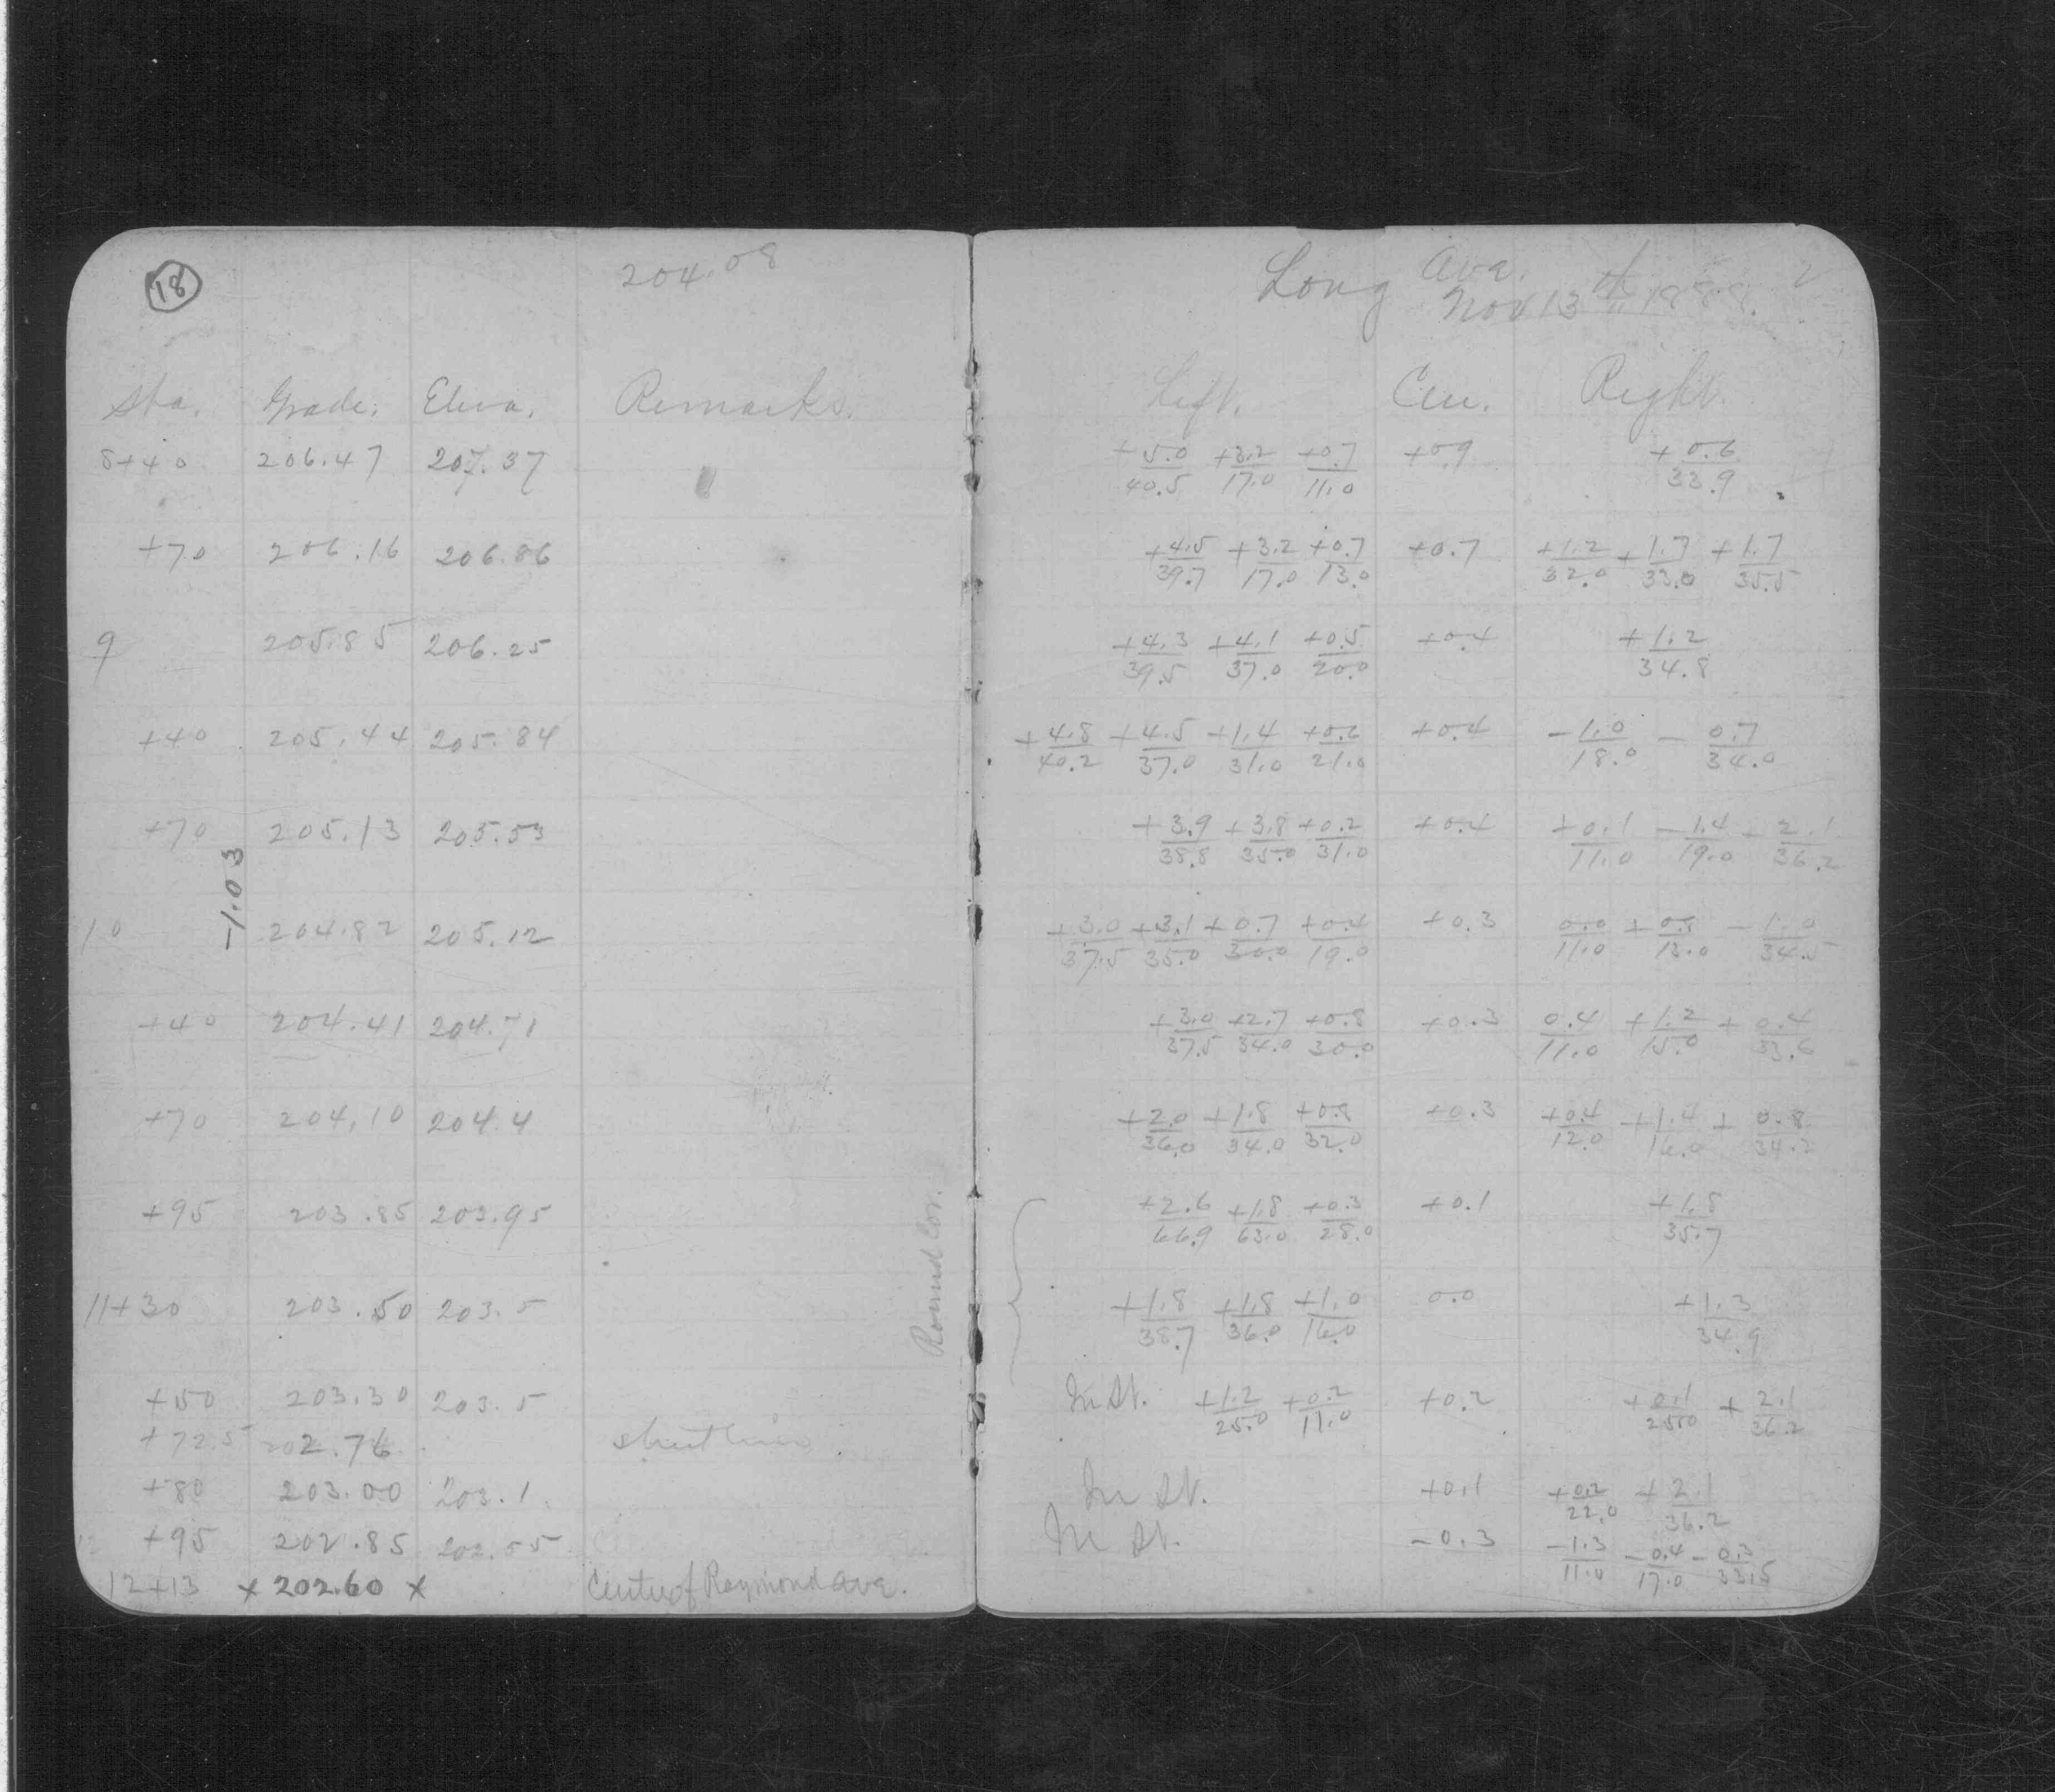 18
204.08
Long Ave.
Nov 13th 1888.
Sta. Grade. Eleva. Remarks. Left. Cen. Right.
8+40 206.47 207.37 +5.0/40.5 +3.2/17.0 +0.7/11.0 +0.9 +0.6/33.9
+70 206.16 206.86 +4.5/39.7 +3.2/17.0 +0.7/13.0 +0.7 +1.2/32.0 +1.7/33.0 +1.7/35.5
9 205.85 206.25 +4.3/39.5 +4.1/37.0 +0.5/20.0 +0.4 +1.2/34.8
+40 205.44 205.84 +4.8/40.2 +4.5/37.0 +1.4/31.0 +0.6/21.0 +0.4 -1.0/18.0 - 0.7/34.0
+70 205.13 205.53 +3.9/38.8 +3.8/35.0 +0.2/31.0 +0.4 +0.1/11.0 -1.4/19.0 - 2.1/36.2
-1.03
10 204.82 205.12 +3.0/37.5 +3.1/35.0 +0.7/30.0 +0.4/19.0 +0.3 0.0/11.0 +0.8/13.0 - 1.0/34.5
+40 204.41 204.71 +3.0/37.5 +2.7/34.0 +0.8/30.0 +0.3 0.4/11.0 +1.2/15.0 + 0.4/33.6
+70 204.10 204.4 +2.0/36.0 +1.8/34.0 +0.8/32.0 +0.3 +0.4/12.0 +1.4/16.0 + 0.8/34.2
+95 203.85 203.95 +2.6/66.9 +1.8/63.0 +0.3/28.0 +0.1 +1.8/35.7
Round Cor.
11+30 203.50 203.5 +1.8/38.7 +1.8/36.0 +1.0/16.0 0.0 +1.3/34.9
+50 203.30 203.5 In St. +1.2/25.0 +0.2/11.0 +0.2 +0.1/25.0 + 2.1/36.2
+72.5 202.76 street line
+80 203.00 203.1 In St. +0.1 +0.2/22.0 + 2.1/36.2
+95 202.85 202.55 In St. -0.3 -1.3/11.0 -0.4/17.0 -0.3/33.5
12+13 x 202.60 x Center of Raymond Ave.